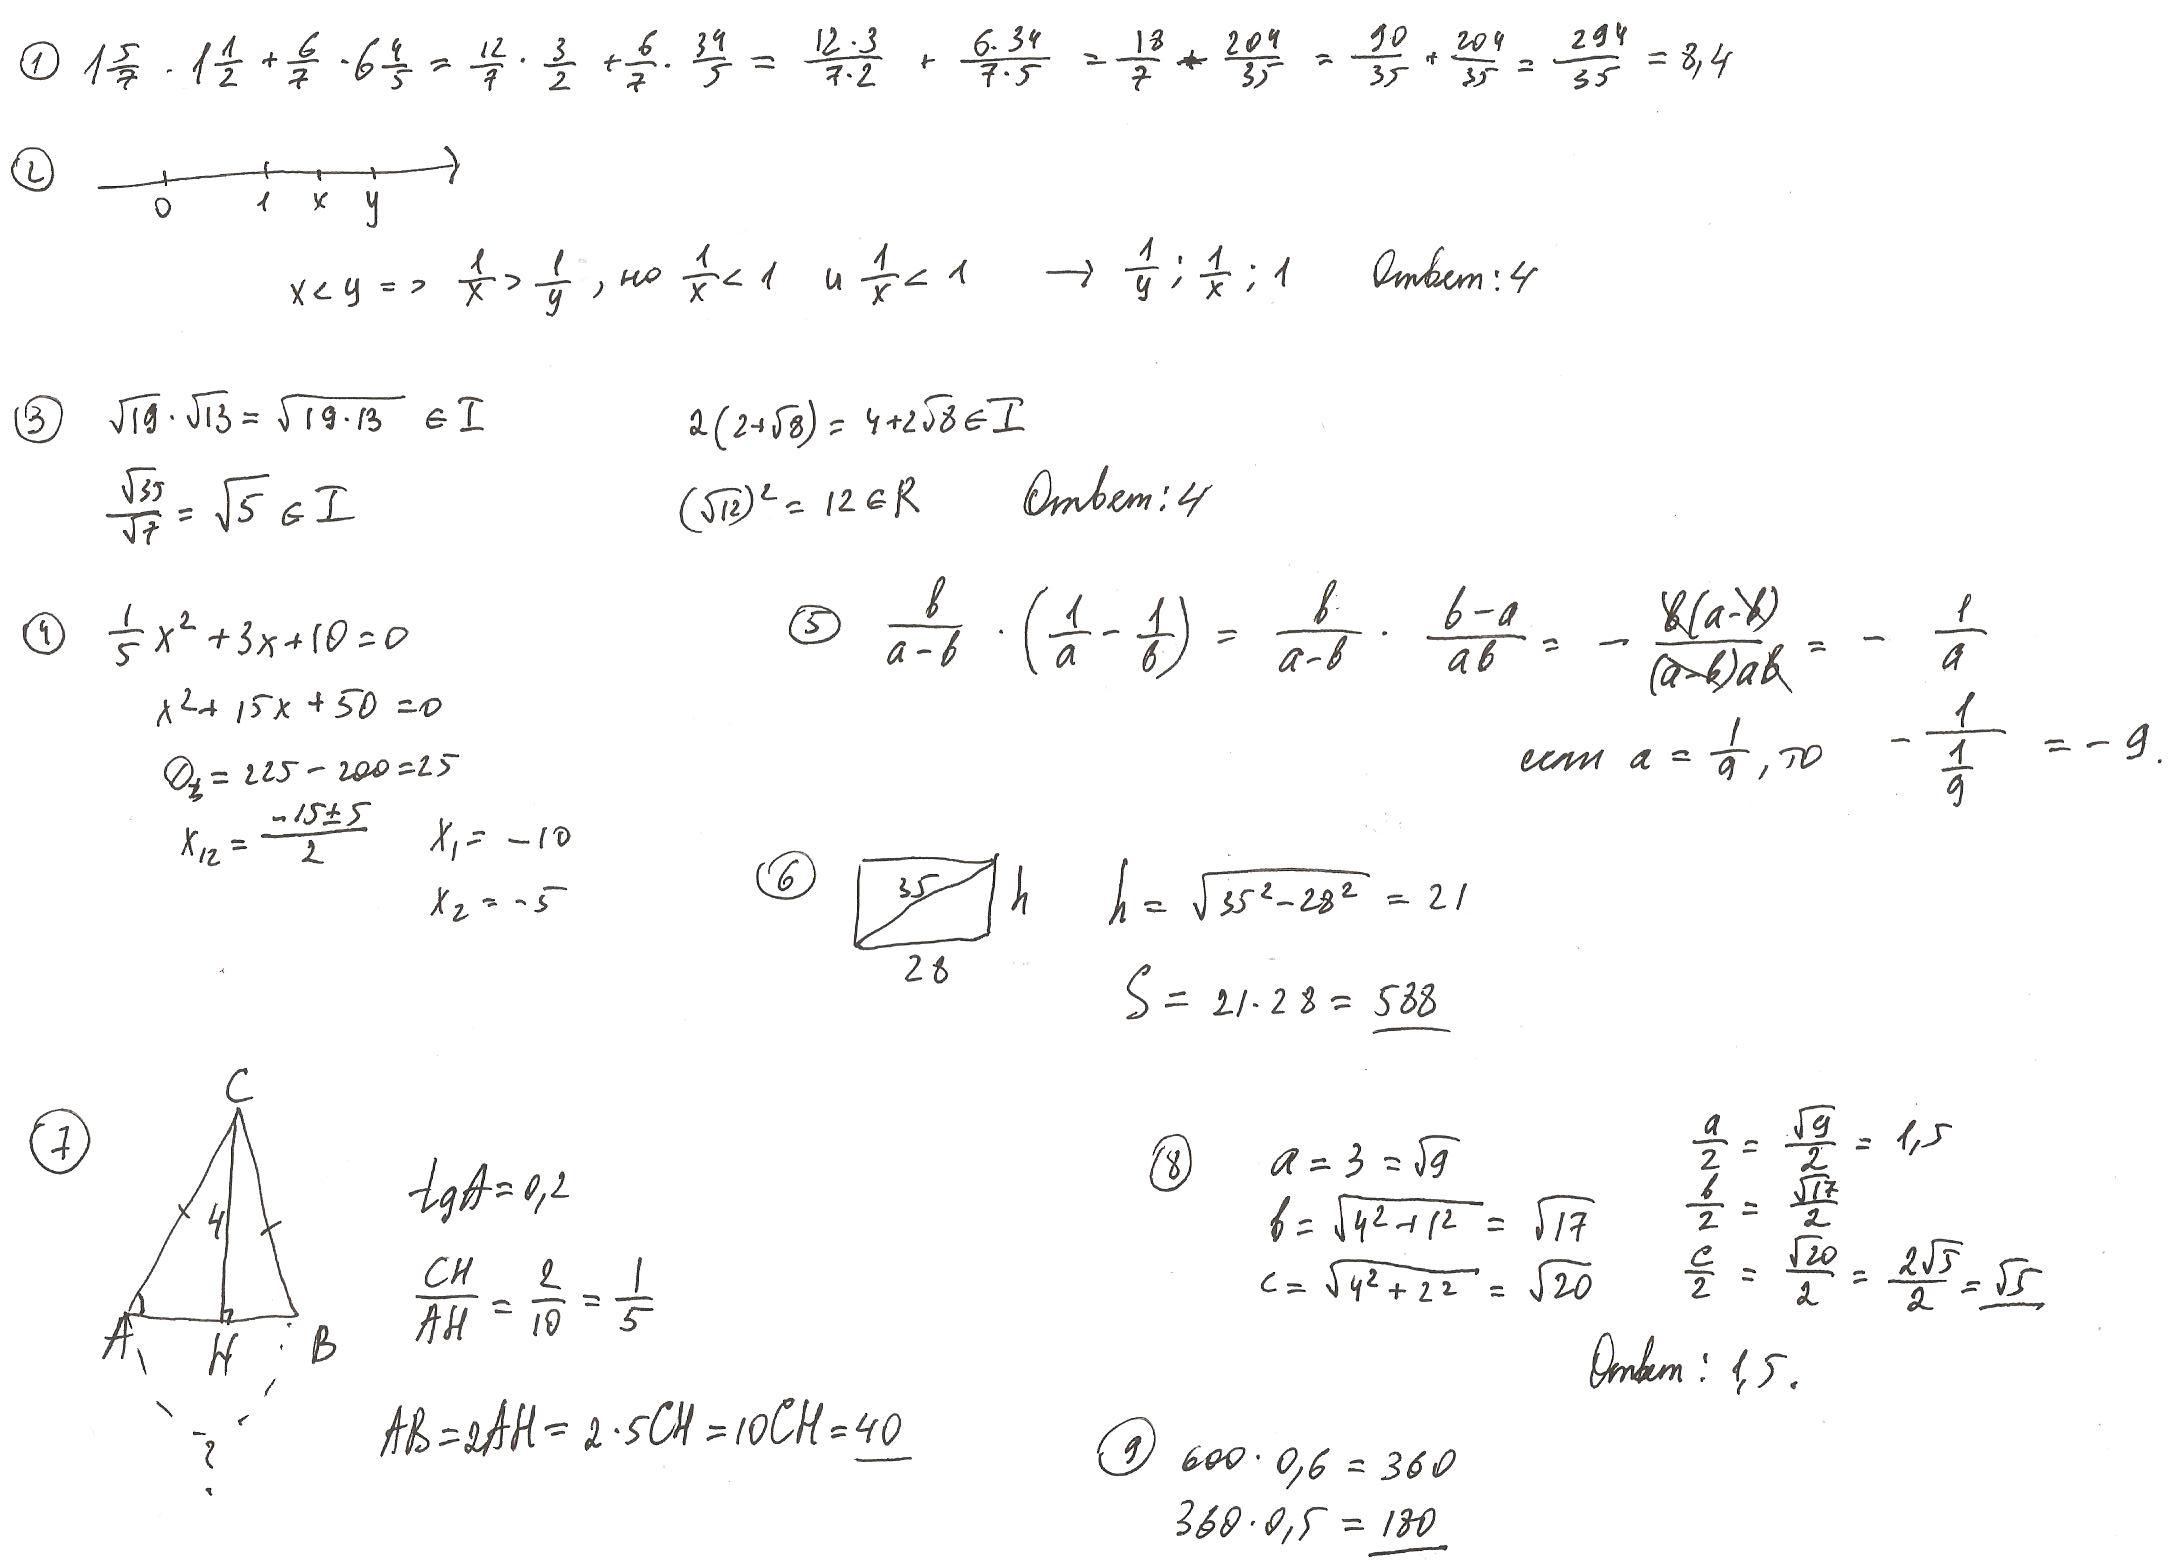 ① 1 5/7 · 1 1/2 + 6/7 · 6 4/5 = 12/7 · 3/2 + 6/7 · 34/5 = 12·3/7·2 + 6·34/7·5 = 18/7 + 204/35 = 90/35 + 204/35 = 294/35 = 8,4
②
0 1 x y
x < y => 1/x > 1/y, но 1/x < 1 и 1/x < 1 → 1/y; 1/x; 1 Ответ: 4
③ √19 · √13 = √19·13 ∈ I
√35/√7 = √5 ∈ I
2(2+√8) = 4+2√8 ∈ I
(√12)² = 12 ∈ R Ответ: 4
④ 1/5 x² + 3x + 10 = 0
x² + 15x + 50 = 0
D = 225 - 200 = 25
x₁₂ = -15±5/2 x₁ = -10
x₂ = -5
⑤ b/a-b · (1/a - 1/b) = b/a-b · b-a/ab = - b(a-b)/(a-b)ab = - 1/a
если a = 1/9, то - 1/(1/9) = -9.
⑥ 35 h h = √35²-28² = 21
28
S = 21·28 = 588
⑦ C
4
A H B
?
tgA = 0,2
CH/AH = 2/10 = 1/5
AB = 2AH = 2·5CH = 10CH = 40
⑧ a = 3 = √9
b = √4²+1² = √17
c = √4²+2² = √20
a/2 = √9/2 = 1,5
b/2 = √17/2
c/2 = √20/2 = 2√5/2 = √5
Ответ: 1,5.
⑨ 600·0,6 = 360
360·0,5 = 180